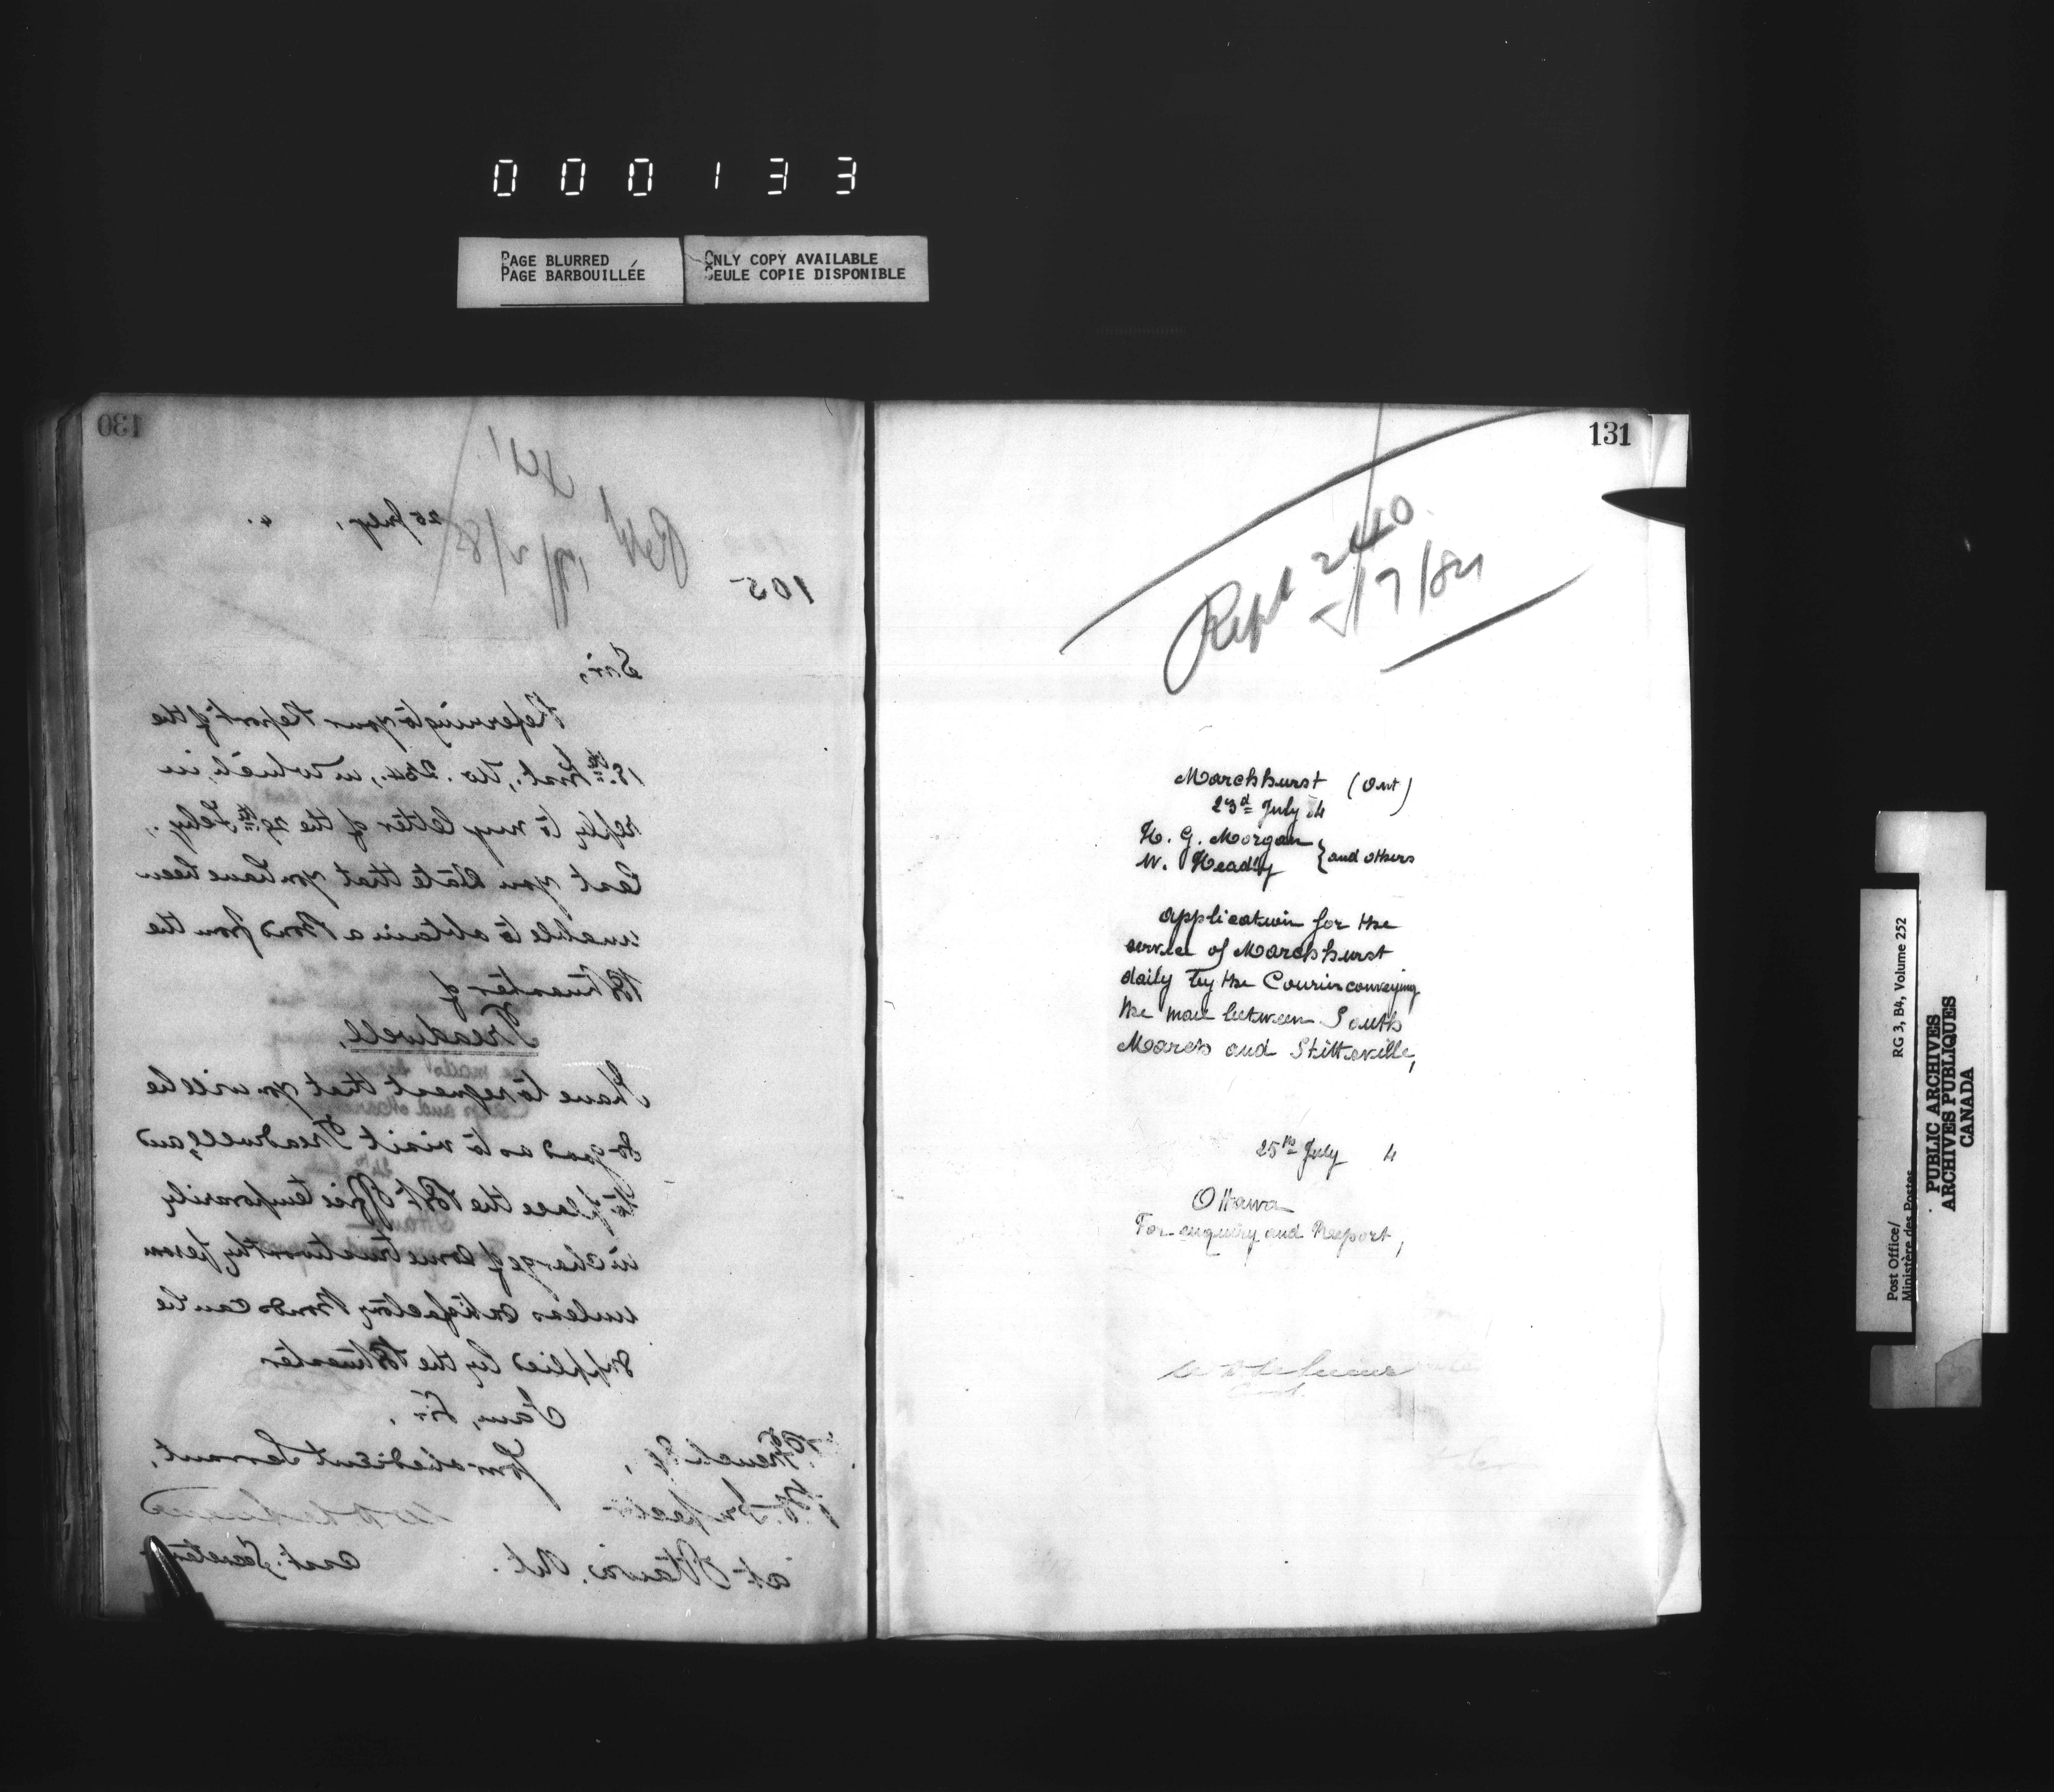 000133
PAGE BLURRED
PAGE BARBOUILLÉE
ONLY COPY AVAILABLE
SEULE COPIE DISPONIBLE
130
25 July, 4.
105
Sir,
Referring to your Report of the
18th Inst., No. 254, in which, in
reply to my letter of the 29th Feby.,
last you state that you have been
unable to obtain a Bond from the
Postmaster of
Treadwell,
I have to request that you will be
so good as to visit Treadwell, and
to place the Post Office temporarily
in charge of some trustworthy person
unless satisfactory Bonds can be
supplied by the Postmaster
I am, Sir,
Your obedient Servant,
French Esq,
P.O. Inspector
at Ottawa, Ont.
Asst. Secretary
131
Rept 240
5/7/84
Marchhurst (Ont)
23d July 84
H. G. Morgan
W. Headly } and others
Application for the
service of Marchhurst
daily by the Courier conveying
the mail between South
March and Stittsville,
25th July 4
Ottawa
For enquiry and Report,
Post Office/
Ministère des Postes
RG 3, B4, Volume 252
PUBLIC ARCHIVES
ARCHIVES PUBLIQUES
CANADA